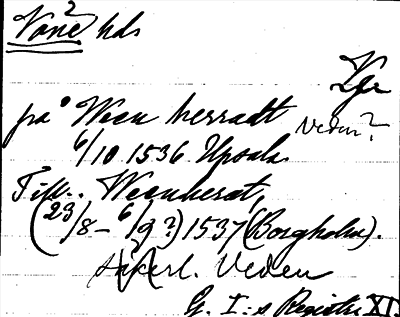 Vane? hds
Vgr
på Ween herradt Veden?
6/10 1536 Upsala.
Till. Weenherat,
(23/8 – 6/9?) 1537 (Borgholm).
Veden
G. I:s Registr. XI.